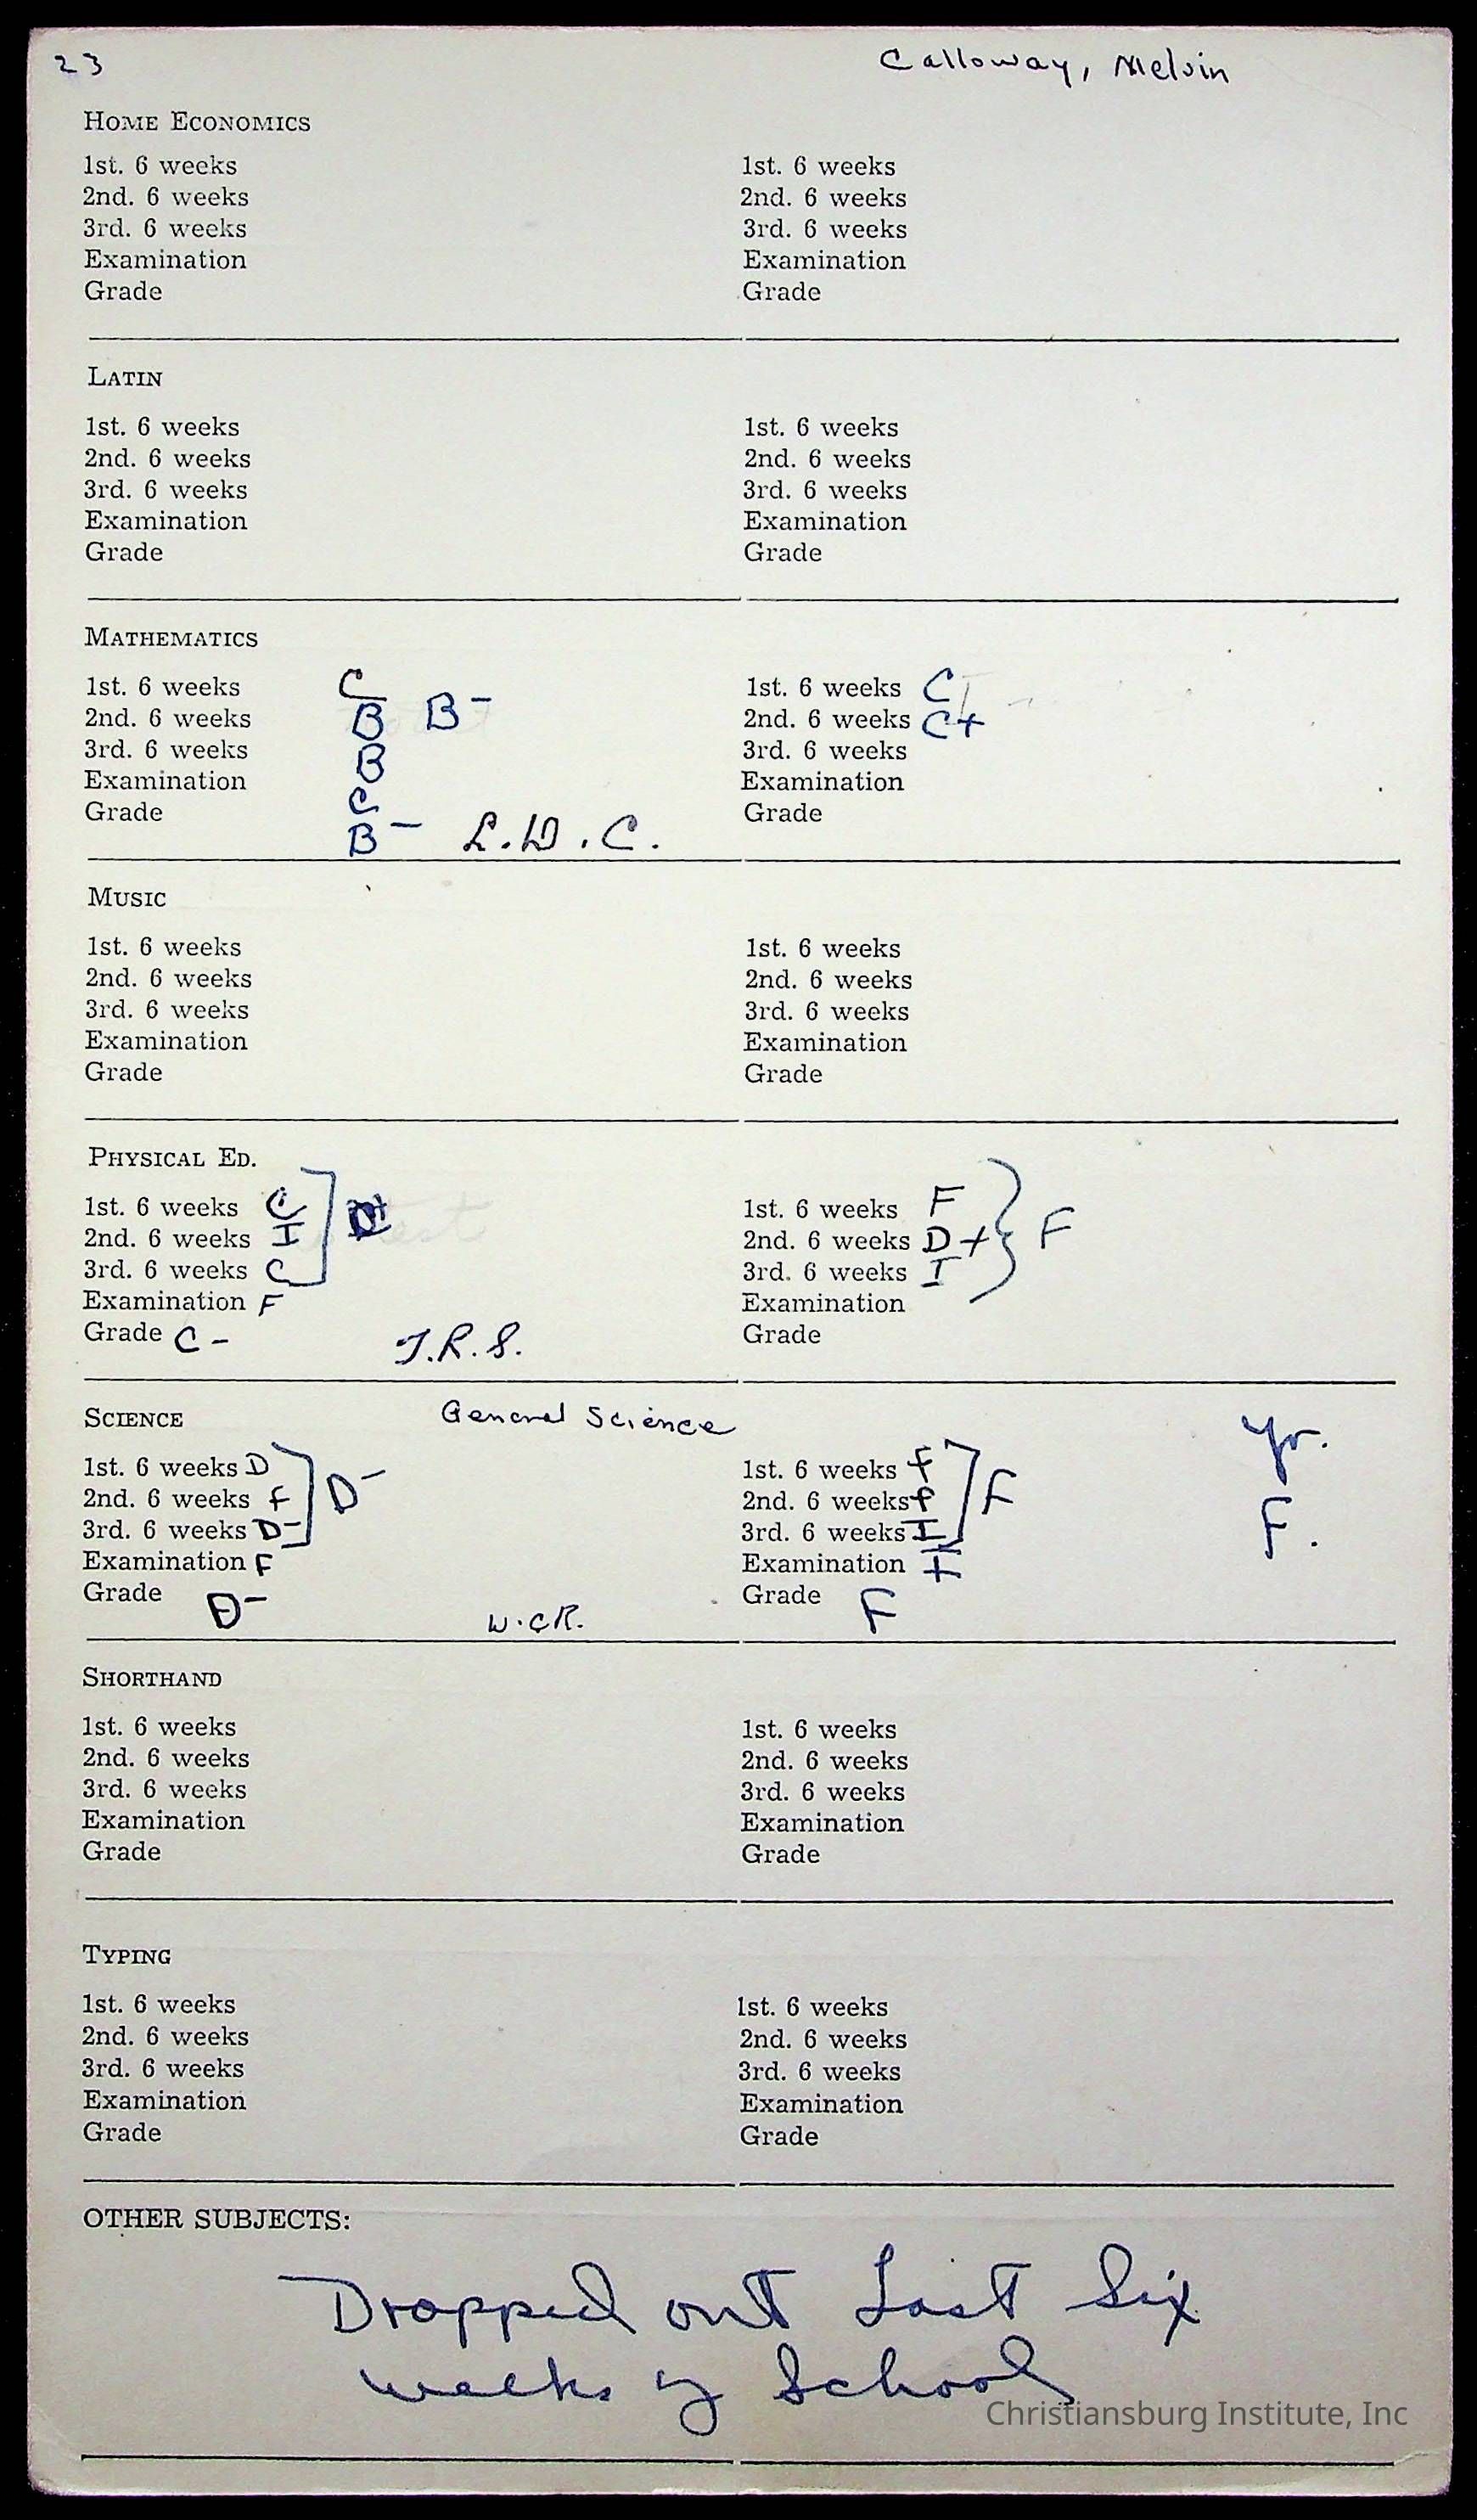 23 Calloway, Melvin
HOME ECONOMICS
1st. 6 weeks 1st. 6 weeks
2nd. 6 weeks 2nd. 6 weeks
3rd. 6 weeks 3rd. 6 weeks
Examination Examination
Grade Grade
LATIN
1st. 6 weeks 1st. 6 weeks
2nd. 6 weeks 2nd. 6 weeks
3rd. 6 weeks 3rd. 6 weeks
Examination Examination
Grade Grade
MATHEMATICS
1st. 6 weeks C 1st. 6 weeks C
2nd. 6 weeks B B- 2nd. 6 weeks C+
3rd. 6 weeks B 3rd. 6 weeks
Examination C Examination
Grade B- L.W.C. Grade
MUSIC
1st. 6 weeks 1st. 6 weeks
2nd. 6 weeks 2nd. 6 weeks
3rd. 6 weeks 3rd. 6 weeks
Examination Examination
Grade Grade
PHYSICAL ED.
1st. 6 weeks C 1st. 6 weeks F
2nd. 6 weeks I 2nd. 6 weeks D+ F
3rd. 6 weeks C 3rd. 6 weeks I
Examination F Examination
Grade C- J.R.S. Grade
SCIENCE General Science Yr.
1st. 6 weeks D 1st. 6 weeks F
2nd. 6 weeks F D- 2nd. 6 weeks F F
3rd. 6 weeks D- 3rd. 6 weeks I F.
Examination F Examination I
Grade D- W.CR. Grade F
SHORTHAND
1st. 6 weeks 1st. 6 weeks
2nd. 6 weeks 2nd. 6 weeks
3rd. 6 weeks 3rd. 6 weeks
Examination Examination
Grade Grade
TYPING
1st. 6 weeks 1st. 6 weeks
2nd. 6 weeks 2nd. 6 weeks
3rd. 6 weeks 3rd. 6 weeks
Examination Examination
Grade Grade
OTHER SUBJECTS:
Dropped out Last Six
weeks of School
Christiansburg Institute, Inc